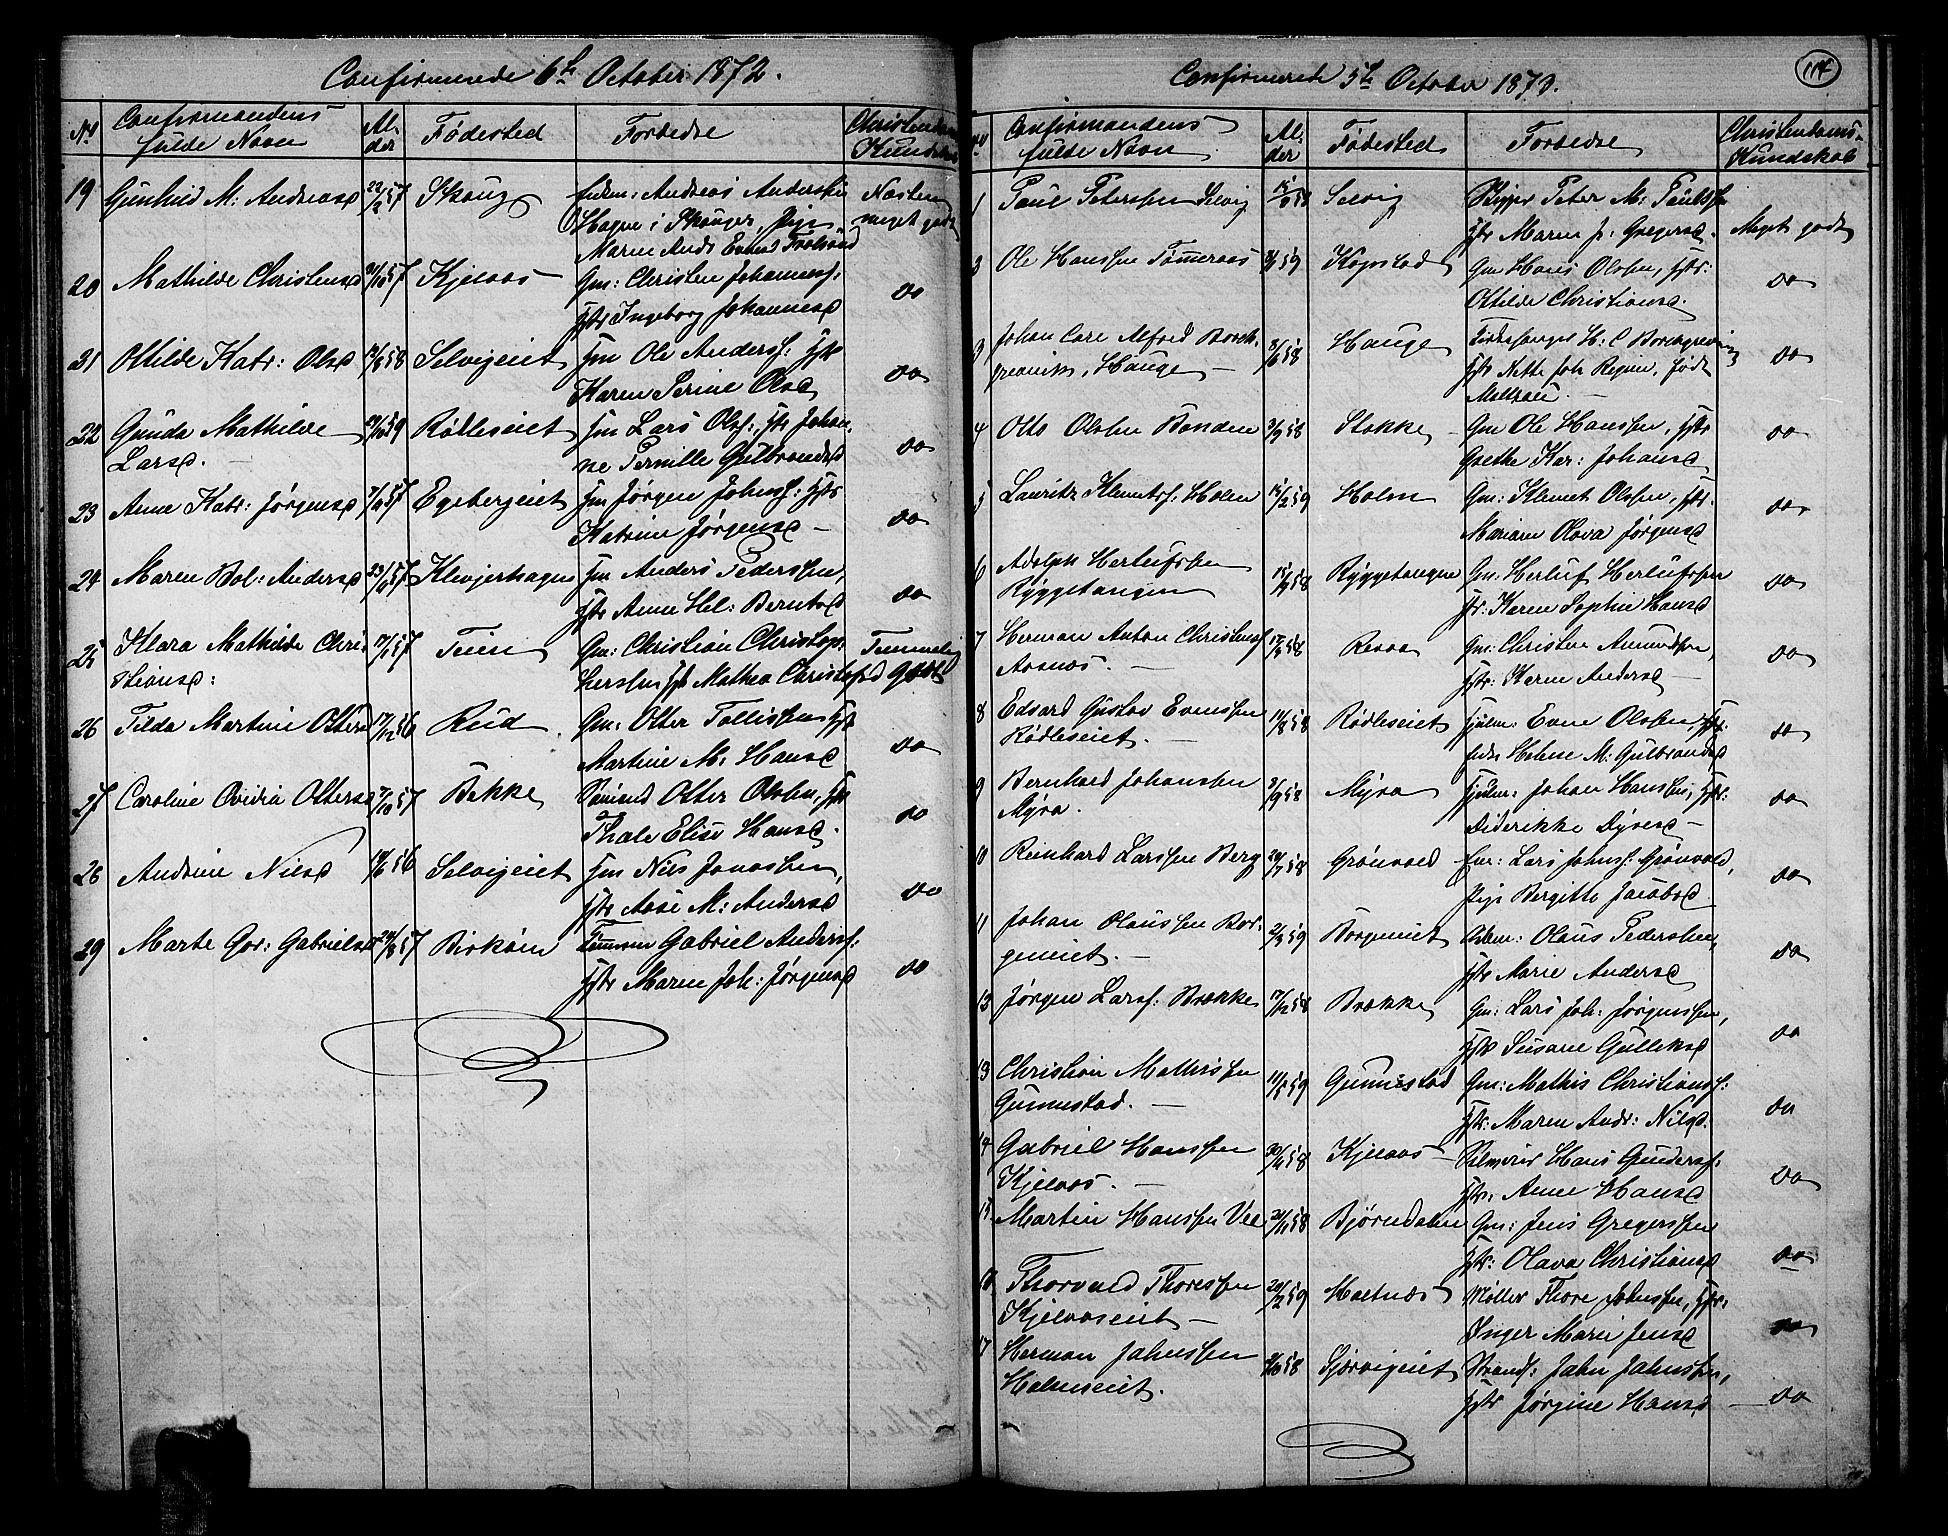 Confirmerede 6te October 1872.
No Confirmandens fulde Navn Alder Fødested Forældre Christendoms Kundskab
19 Gunhild M: Andreasd 22/2 57 Skoug Andreas Anderssen
Hagen i Skouger, Pige
Maren Andr Næsten meget godt
20 Mathilde Christensd 57 Kjeldaas Gm: Christen Johannesf:
Hstr Ingeborg Johannesd do
21 Ottilde Katr: Olsd 58 Selvigeiet Hm Ole Andersf: Hstr
Karen Serine Olsd do
22 Gunda Mathilde Larsd. 59 Rødleseiet Hm Lars Olsf: Hstr Johanne
Pernille Gulbrandsd do
23 Anne Katr: Jørgensd 57 Egebergeiet Hm Jørgen Johnsf: Hstr
Katrine Jørgensd – do
24 Maren Bol: Andersd 57 Klevjerhagen Hm Anders Pederssen,
Hstr Anne Hel: Berntsd do
25 Klara Mathilde Christiansd: 57 Teien Gm: Christian Christopherssen
Hstr Mathea Christofsd Temmelig Godt
26 Tilda Martine Ottersd 17/12 56 Rud Gm: Otter Tollefssen Hstr
Martine M: Hansd do
27 Caroline Ovidia Ottersd 57 Bekke Sømand Otter Olssen, Hstr
Thale Elise Hansd. do
28 Andrine Nilsd 56 Selvigeiet Hm Nils Jonassen,
Hstr Aase M: Andersd do
29 Marte Gor: Gabrielsd 57 Birkøien Tømmerm Gabriel Andersf:
Hstr Maren Joh: Jørgensd do
114
Confirmerede 5te October 1873.
No Confirmandens fulde Navn Alder Fødested Forældre Christendoms-Kundskab
1 Paul Peterssen Selvig 58 Selvig Skipper Peter M: Paulssen
Hstr Maren J: Gregersd. Meget godt
2 Ole Hanssen Tømmeraas 59 Kopstad Gm Hans Olssen, Hstr:
Ottilde Christiansd. do
3 Johan Carl Alfred Borchgrevink, Hauge – 58 Hauge H: C Borchgrevink
Hstr Nette Joh Regine, født
Meltzau. do
4 Otto Olssen Bonden 3/9 58 Stokke – Gm Ole Hanssen, Hstr
Grethe Kar: Johansd do
5 Lauritz Klemetsf: Holm 59 Holm Gm: Klemet Olssen, Hstr:
Mariane Olava Jørgensd do
6 Adolph Herlufssen Ryggetangen 58 Ryggetangen Gm: Herluf Herlufssen
Hstr: Karen Sophie Hansd do
7 Herman Anton Christensf Aasnæs. – 58 Revaa Gm: Christen Amundssen,
Hstr: Karen Andersd – do
8 Edvard Gustav Evenssen Rødleseiet. – 11/8 58 Rødleseiet Hjulm: Even Olssen, Hstr:
Helene M: Gulbrandsd do
9 Bernhard Johanssen Myra. 3/9 58 Myra Hjulm: Johan Hanssen, Hstr:
Diderikke Dyresd – do
10 Reinhard Larssen Berg 20/7 58 Grønvold Em: Lars Johnsf: Grønvold,
Pige Bergitte Jacobsd do
11 Johan Olaussen Borgeneiet. – 59 Borgeneiet Arbm: Olaus Pederssen,
Hstr Marie Andersd do
12 Jørgen Larsf: Brekke 17/12 58 Brekke Gm: Lars Joh: Jørgenssen,
Hstr Susane Gulliksd do
13 Christian Mathissen Gunnestad. – 11/5 59 Gunnestad Gm: Mathis Christiansf:
Hstr: Maren Andr: Nilsd. do
14 Gabriel Hanssen Kjelaas. – 58 Kjelaas – Hans Gundersf:
Hstr: Anne Hansd do
15 Martin Hanssen Vee 58 Bjørndalen Gm: Jens Gregerssen
Hstr: Olava Christiansd do
16 Thorvald Thoressen Kjelaaseiet – 20/2 59 Holtnæs Møller Thore Johnssen, Hstr:
Inger Marie Jensd do
17 Herman Johnssen Holmseiet. 58 Sjervigeiet Strands: John Johnssen,
Hstr Jørgine Hansd – do